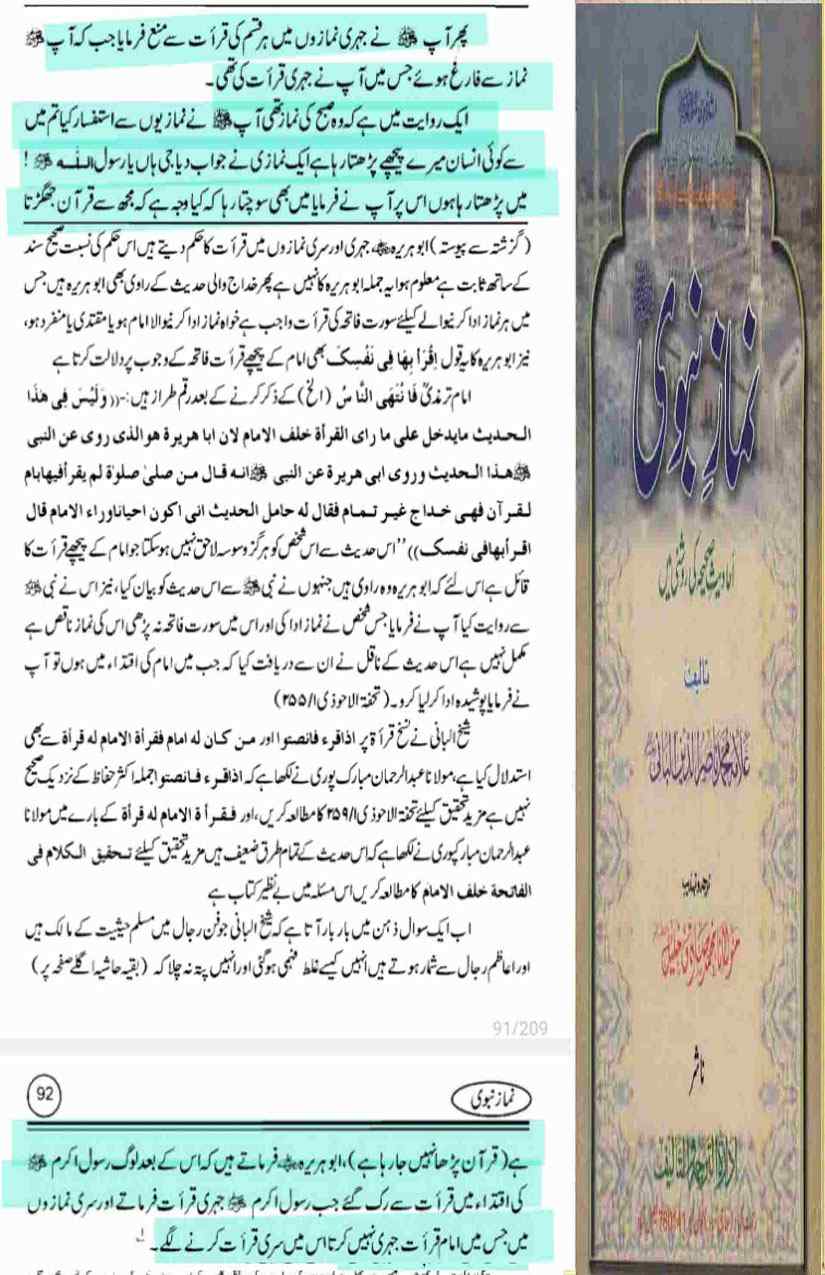 پھر آپ ﷺ نے جہری نمازوں میں ہر قسم کی قرأت سے منع فرمایا جب کہ آپ ﷺ
نماز سے فارغ ہوئے جس میں آپ نے جہری قرأت کی تھی۔
ایک روایت میں ہے کہ وہ صبح کی نماز تھی آپ ﷺ نے نمازیوں سے استفسار کیا تم میں
سے کوئی انسان میرے پیچھے پڑھتا رہا ہے ایک نمازی نے جواب دیا جی ہاں یا رسول اللہ ﷺ !
میں پڑھتا رہا ہوں اس پر آپ نے فرمایا میں بھی سوچتا رہا کہ کیا وجہ ہے کہ مجھ سے قرآن جھگڑتا
(گزشتہ سے پیوستہ) ابو ہریرہ، جہری اور سری نمازوں میں قرأت کا حکم دیتے ہیں اس حکم کی نسبت صحیح سند
کے ساتھ ثابت ہے معلوم ہوا یہ جملہ ابو ہریرہ کا نہیں ہے پھر خداج والی حدیث کے راوی بھی ابو ہریرہ ہیں جس
میں ہر نماز ادا کرنیوالے کیلئے سورت فاتحہ کی قرأت واجب ہے خواہ نماز ادا کرنیوالا امام ہو یا مقتدی یا منفرد ہو،
نیز ابو ہریرہ کا یہ قول اِقْرَأْ بِهَا فِی نَفْسِکَ بھی امام کے پیچھے قرأت فاتحہ کے وجوب پر دلالت کرتا ہے
امام ترمذیؒ فَا نْتَهَى النَّا سُ (الخ) کے ذکر کرنے کے بعد رقم طراز ہیں:-((وَلَيْسَ فِى هٰذَا
الحديث مايدخل على ما راى القرأة خلف الامام لان ابا هريرة هو الذى روى عن النبى
ﷺ هذا الحديث وروى ابى هريرة عن النبى ﷺ انه قال من صلىٰ صلوٰة لم يقرأ فيها بام
لقرآن فهى خداج غير تمام فقال له حامل الحديث انى اكون احيانا وراء الامام قال
اقرأ بها فى نفسک)) "اس حدیث سے اس شخص کو ہرگز وسوسہ لاحق نہیں ہو سکتا جو امام کے پیچھے قرأت کا
قائل ہے اس لئے کہ ابو ہریرہ وہ راوی ہیں جنہوں نے نبی ﷺ سے اس حدیث کو بیان کیا، نیز اس نے نبی ﷺ
سے روایت کیا آپ نے فرمایا جس شخص نے نماز ادا کی اور اس میں سورت فاتحہ نہ پڑھی اس کی نماز ناقص ہے
مکمل نہیں ہے اس حدیث کے ناقل نے ان سے دریافت کیا کہ جب میں امام کی اقتداء میں ہوں تو آپ
نے فرمایا پوشیدہ ادا کر لیا کرو۔ (تحفۃ الاحوذی ۲۵۵/۱)
شیخ البانی نے نسخ قرأۃ پر اذا قرء فانصتوا اور من كان له امام فقرأة الامام له قرأة سے بھی
استدلال کیا ہے، مولانا عبدالرحمان مبارک پوری نے لکھا ہے کہ اذا قرء فانصتوا جملہ اکثر حفاظ کے نزدیک صحیح
نہیں ہے مزید تحقیق کیلئے تحفۃ الاحوذی ۲۵۹/۱ کا مطالعہ کریں، اور فقرأة الامام له قرأة کے بارے میں مولانا
عبدالرحمان مبارکپوری نے لکھا ہے کہ اس حدیث کے تمام طرق ضعیف ہیں مزید تحقیق کیلئے تحقيق الكلام فى
الفاتحة خلف الامام کا مطالعہ کریں اس مسئلہ میں بے نظیر کتاب ہے
اب ایک سوال ذہن میں بار بار آتا ہے کہ شیخ البانی جو فن رجال میں مسلم حیثیت کے مالک ہیں
اور اعاظم رجال سے شمار ہوتے ہیں انہیں کیسے غلط فہمی ہو گئی اور انہیں پتہ نہ چلا کہ (بقیہ حاشیہ اگلے صفحہ پر)
91/209
نماز نبوی
92
ہے (قرآن پڑھا نہیں جا رہا ہے)، ابو ہریرہ فرماتے ہیں کہ اس کے بعد لوگ رسول اکرم ﷺ
کی اقتداء میں قرأت سے رک گئے جب رسول اکرم ﷺ جہری قرأت فرماتے اور سری نمازوں
میں جس میں امام قرأت جہری نہیں کرتا اس میں سری قرأت کرنے لگے۔
نمازِ نبوی
احادیث صحیحہ کی روشنی میں
تالیف
علامہ محمد ناصر الدین البانی
ترجمہ و تہذیب
مولانا محمد صادق خلیل
ناشر
ادارۃ الترجمۃ والتالیف